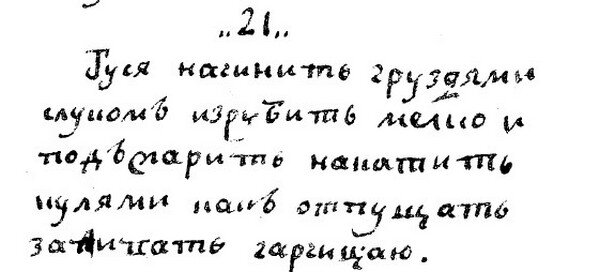 „21„
Гуся начинить груздями
слукомъ изрубить мелко и
подъжарить накатить
кулями какъ отпущать
гарчицаю.